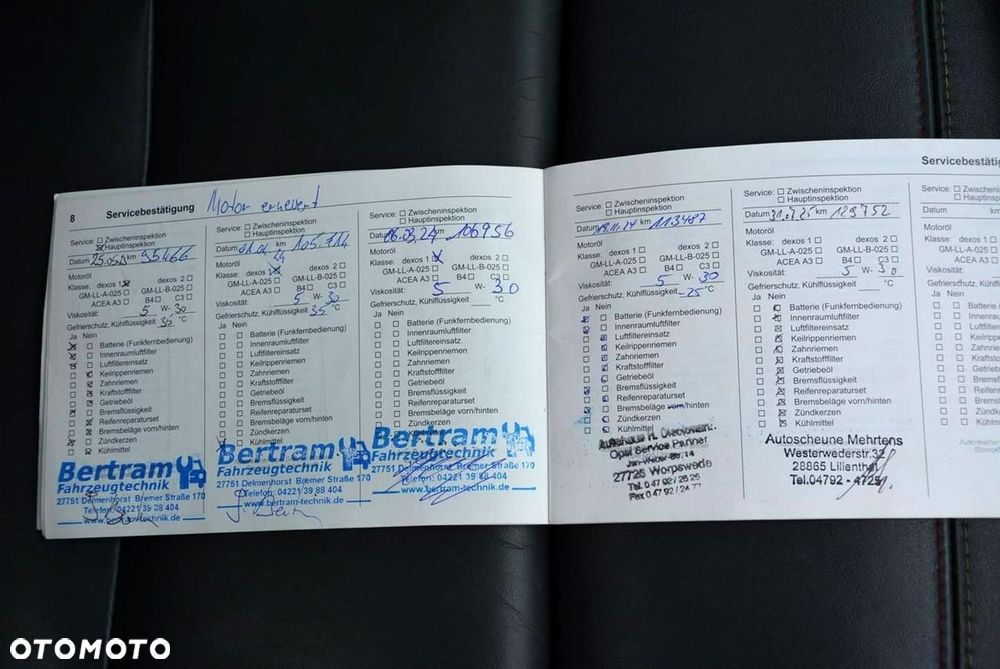 8 Servicebestätigung Motor erneuert
Service: Zwischeninspektion
Hauptinspektion
Datum km 95466
Motoröl
Klasse: dexos 1 dexos 2
GM-LL-A-025 GM-LL-B-025
ACEA A3 B4 C3
Viskosität: 5 W- 30
Gefrierschutz, Kühlflüssigkeit 35 °C
Ja Nein
Batterie (Funkfernbedienung)
Innenraumluftfilter
Luftfiltereinsatz
Keilrippenriemen
Zahnriemen
Kraftstofffilter
Getriebeöl
Bremsflüssigkeit
Reifenreparaturset
Bremsbeläge vorn/hinten
Zündkerzen
Kühlmittel
Bertram
Fahrzeugtechnik
27751 Delmenhorst Bremer Straße 170
Telefon: 04221 39 88 404
www.bertram-technik.de
Service: Zwischeninspektion
Hauptinspektion
Datum km 105.714
Motoröl
Klasse: dexos 1 dexos 2
GM-LL-A-025 GM-LL-B-025
ACEA A3 B4 C3
Viskosität: 5 W- 30
Gefrierschutz, Kühlflüssigkeit 35 °C
Ja Nein
Batterie (Funkfernbedienung)
Innenraumluftfilter
Luftfiltereinsatz
Keilrippenriemen
Zahnriemen
Kraftstofffilter
Getriebeöl
Bremsflüssigkeit
Reifenreparaturset
Bremsbeläge vorn/hinten
Zündkerzen
Kühlmittel
Bertram
Fahrzeugtechnik
27751 Delmenhorst Bremer Straße 170
Telefon: 04221 39 88 404
www.bertram-technik.de
Service: Zwischeninspektion
Hauptinspektion
Datum 06.03.24 km 106956
Motoröl
Klasse: dexos 1 dexos 2
GM-LL-A-025 GM-LL-B-025
ACEA A3 B4 C3
Viskosität: 5 W- 30
Gefrierschutz, Kühlflüssigkeit °C
Ja Nein
Batterie (Funkfernbedienung)
Innenraumluftfilter
Luftfiltereinsatz
Keilrippenriemen
Zahnriemen
Kraftstofffilter
Getriebeöl
Bremsflüssigkeit
Reifenreparaturset
Bremsbeläge vorn/hinten
Zündkerzen
Bertram
Fahrzeugtechnik
27751 Delmenhorst Bremer Straße 170
Telefon: 04221 39 88 404
www.bertram-technik.de
Service: Zwischeninspektion
Hauptinspektion
Datum km 113487
Motoröl
Klasse: dexos 1 dexos 2
GM-LL-A-025 GM-LL-B-025
ACEA A3 B4 C3
Viskosität: 5 W- 30
Gefrierschutz, Kühlflüssigkeit -25 °C
Ja Nein
Batterie (Funkfernbedienung)
Innenraumluftfilter
Luftfiltereinsatz
Keilrippenriemen
Zahnriemen
Kraftstofffilter
Getriebeöl
Bremsflüssigkeit
Reifenreparaturset
Bremsbeläge vorn/hinten
Zündkerzen
Kühlmittel
Autohaus H.
Opel Service Partner
27726 Worpswede
Service: Zwischeninspektion
Hauptinspektion
Datum km
Motoröl
Klasse: dexos 1 dexos 2
GM-LL-A-025 GM-LL-B-025
ACEA A3 B4 C3
Viskosität: 5 W- 30
Gefrierschutz, Kühlflüssigkeit °C
Ja Nein
Batterie (Funkfernbedienung)
Innenraumluftfilter
Luftfiltereinsatz
Keilrippenriemen
Zahnriemen
Kraftstofffilter
Getriebeöl
Bremsflüssigkeit
Reifenreparaturset
Bremsbeläge vorn/hinten
Zündkerzen
Kühlmittel
Autoscheune Mehrtens
Westerwederstr.32
28865 Lilienthal
Tel.04792 - 4725
Servicebestätig
Service: Zwischeninspe
Hauptinspekti
Datum km
Motoröl
Klasse: dexos 1
GM-LL-A-025
ACEA A3
Viskosität:
Gefrierschutz, Kühlflüss
Ja Nein
Batterie (Funkf
Innenraumluftf
Luftfiltereinsat
Keilrippenriem
Zahnriemen
Kraftstofffilter
Getriebeöl
Bremsflüssigk
Reifenreparatu
Bremsbeläge v
Zündkerzen
Kühlmittel
OTOMOTO